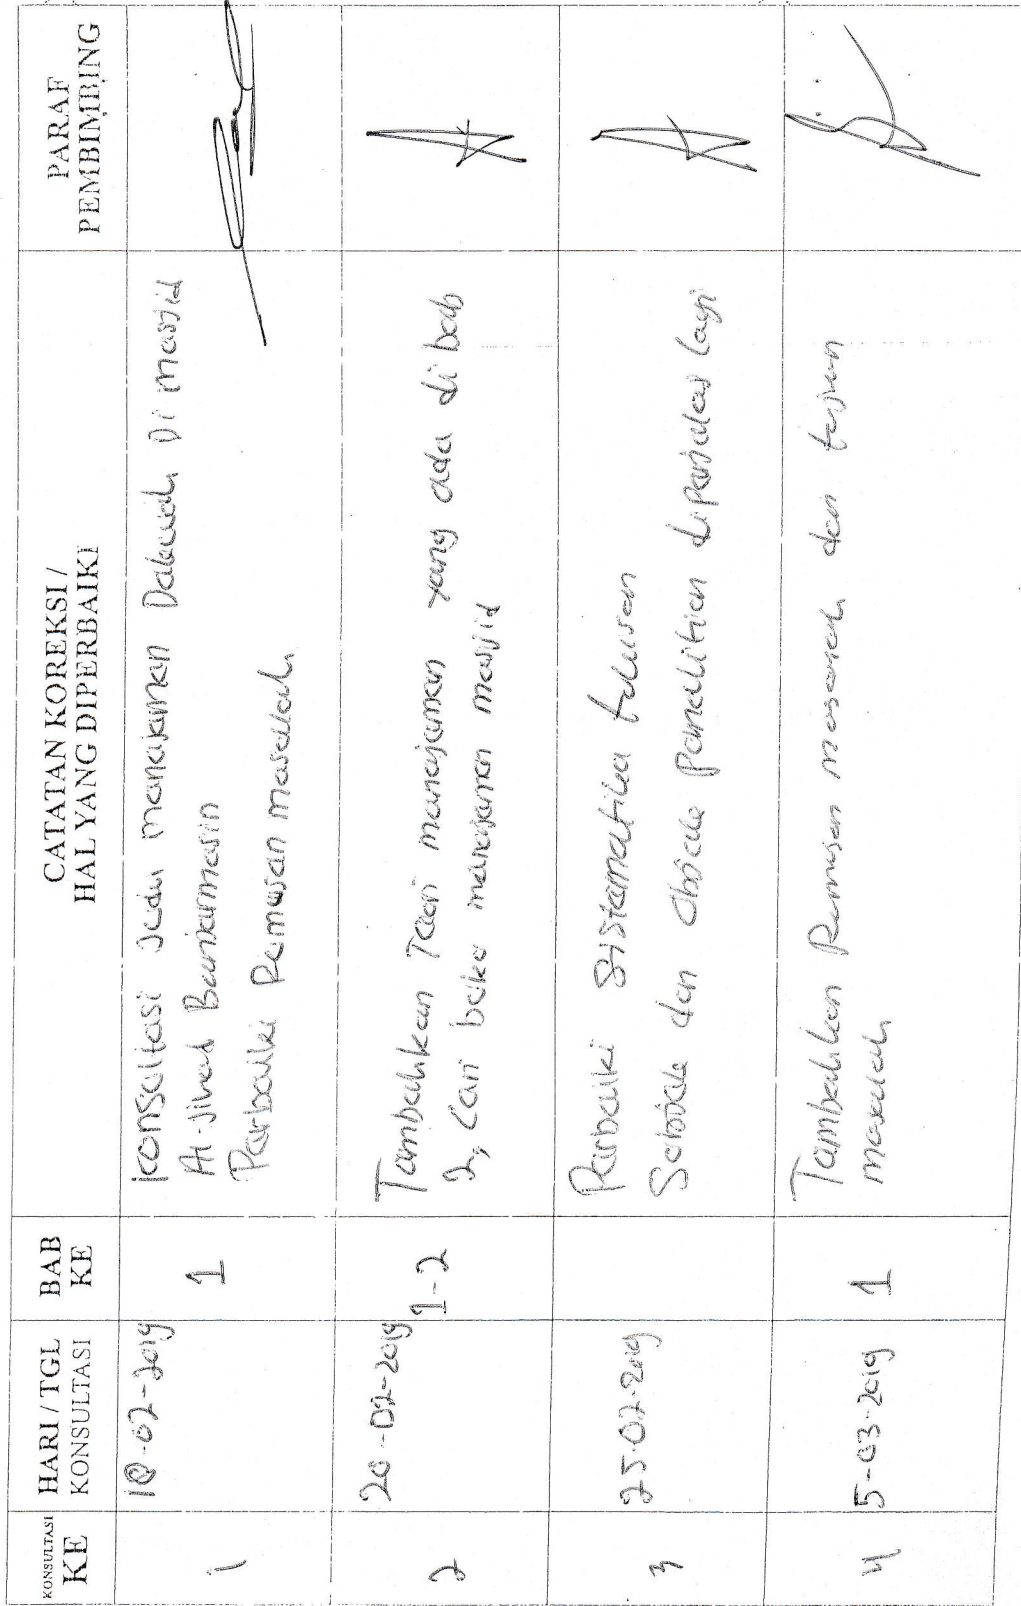 KONSULTASI
KE
HARI / TGL
KONSULTASI
BAB
KE
CATATAN KOREKSI /
HAL YANG DIPERBAIKI
PARAF
PEMBIMBING
1
18-02-2019
1
Konsultasi Judul manajemen Dakwah Di masjid
Al-Jihad Banjarmasin
Perbaiki Rumusan masalah
2
20-02-2019
1-2
Tambahkan Teori manajemen yang ada di bab
2, cari buku manajemen masjid
3
25-02-2019
Perbaiki Sistematika tulisan
Subjek dan Objek Penelitian diperjelas lagi
4
5-03-2019
1
Tambahkan Rumusan masalah dan tujuan
masalah